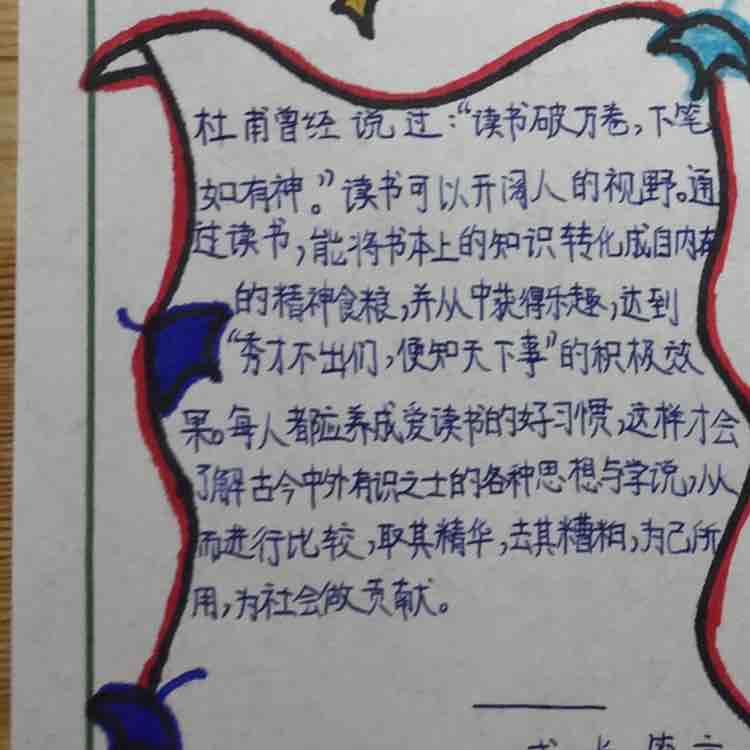 杜甫曾经说过:“读书破万卷,下笔
如有神。”读书可以开阔人的视野。通
过读书,能将书本上的知识转化成自内在
的精神食粮,并从中获得乐趣,达到
“秀才不出们,便知天下事”的积极效
果。每人都应养成爱读书的好习惯,这样才会
了解古今中外有识之士的各种思想与学说,从
而进行比较,取其精华,去其糟粕,为己所
用,为社会做贡献。